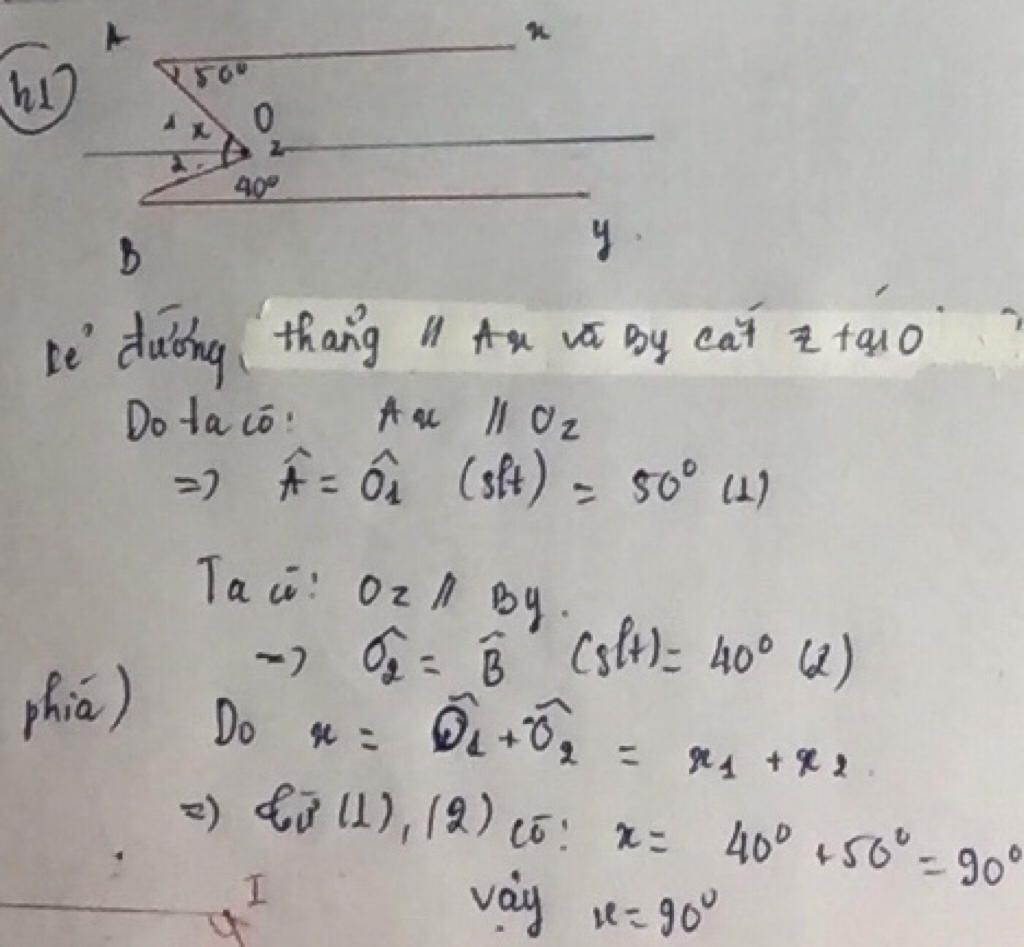 h1
A
x
50°
1 x
O
2
z
40°
B
y
kẻ đường thẳng // Ax và By cắt z tại O
Do ta có: Ax // Oz
=> Â = Ô1 (slt) = 50° (1)
Ta có: Oz // By.
=> Ô2 = B̂ (slt) = 40° (2)
phía)
Do x = Ô1 + Ô2 = x1 + x2.
=> từ (1), (2) có: x = 40° + 50° = 90°
I
vậy x = 90°